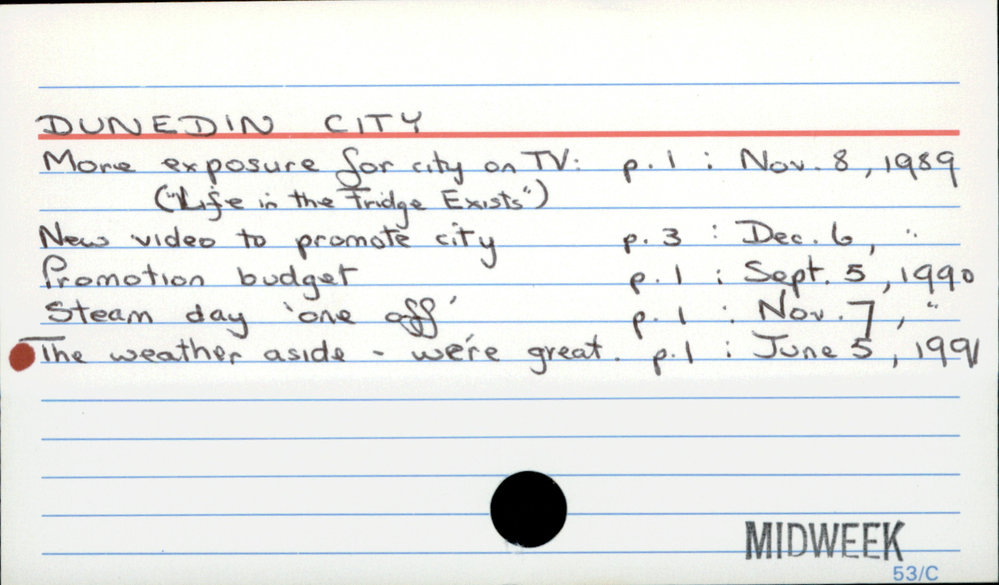 DUNEDIN CITY
More exposure for city on TV: p. 1 : Nov. 8, 1989
("Life in the Fridge Exists")
New video to promote city p. 3 : Dec. 6, "
Promotion budget p. 1 : Sept. 5, 1990
Steam day 'one off' p. 1 : Nov. 7, "
The weather aside - we're great. p. 1 : June 5, 1991
MIDWEEK
53/C